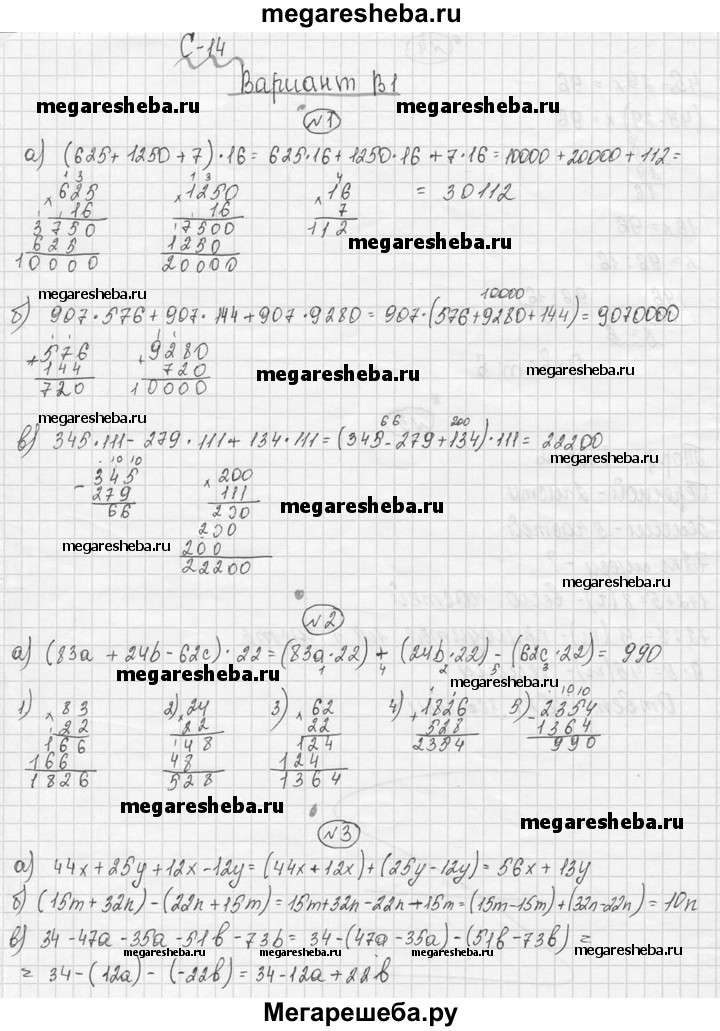 megaresheba.ru
С-14
Вариант В1
megaresheba.ru
megaresheba.ru
№1
а) (625+1250+7)·16= 625·16+1250·16+7·16=10000+20000+112=
= 30112
1 3
×625
16
3750
625
10000
1 3
×1250
16
7500
1250
20000
4
×16
7
112
megaresheba.ru
megaresheba.ru
10000
б) 907·576+907·144+907·9280= 907·(576+9280+144)=9070000
+576
144
720
+9280
720
10000
megaresheba.ru
megaresheba.ru
megaresheba.ru
66 200
в) 345·111-279·111+134·111=(345-279+134)·111= 22200
10 10
-345
279
66
×200
111
200
200
200
22200
megaresheba.ru
megaresheba.ru
megaresheba.ru
megaresheba.ru
№2
а) (83a+24b-62c)·22=(83a·22)+(24b·22)-(62c·22)= 990
1 4 2 5 3
megaresheba.ru
megaresheba.ru
1) ×83
22
166
166
1826
2) ×24
22
48
48
528
3) ×62
22
124
124
1364
4) +1826
528
2354
5) 10 10
-2354
1364
990
megaresheba.ru
megaresheba.ru
№3
а) 44x+25y+12x-12y=(44x+12x)+(25y-12y)=56x+13y
б) (15m+32n)-(22n+15m)=15m+32n-22n+15m=(15m-15m)+(32n-22n)=10n
в) 34-47a-35a-51b-73b= 34-(47a-35a)-(51b-73b)=
= 34-(12a)-(-22b)=34-12a+22b
Мегарешеба.ру